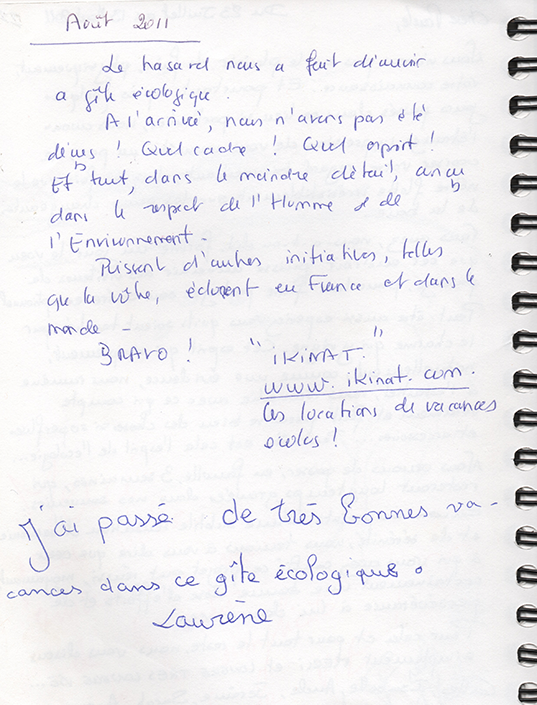 Août 2011
Le hasard nous a fait découvrir
a gîte écologique.
A l'arrivé, nous n'avons pas été
déçus ! Quel cadre ! Quel esprit !
Et tout, dans le moindre détail, conçu
dans le respect de l'Homme & de
l'Environnement.
Puissent d'autres initiatives, telles
que la vôtre, éclorent en France et dans le
monde -
BRAVO ! "IKINAT."
www.ikinat.com.
les locations de vacances
écolos !
j'ai passé de très bonnes va-
cances dans ce gîte écologique.
Laurène